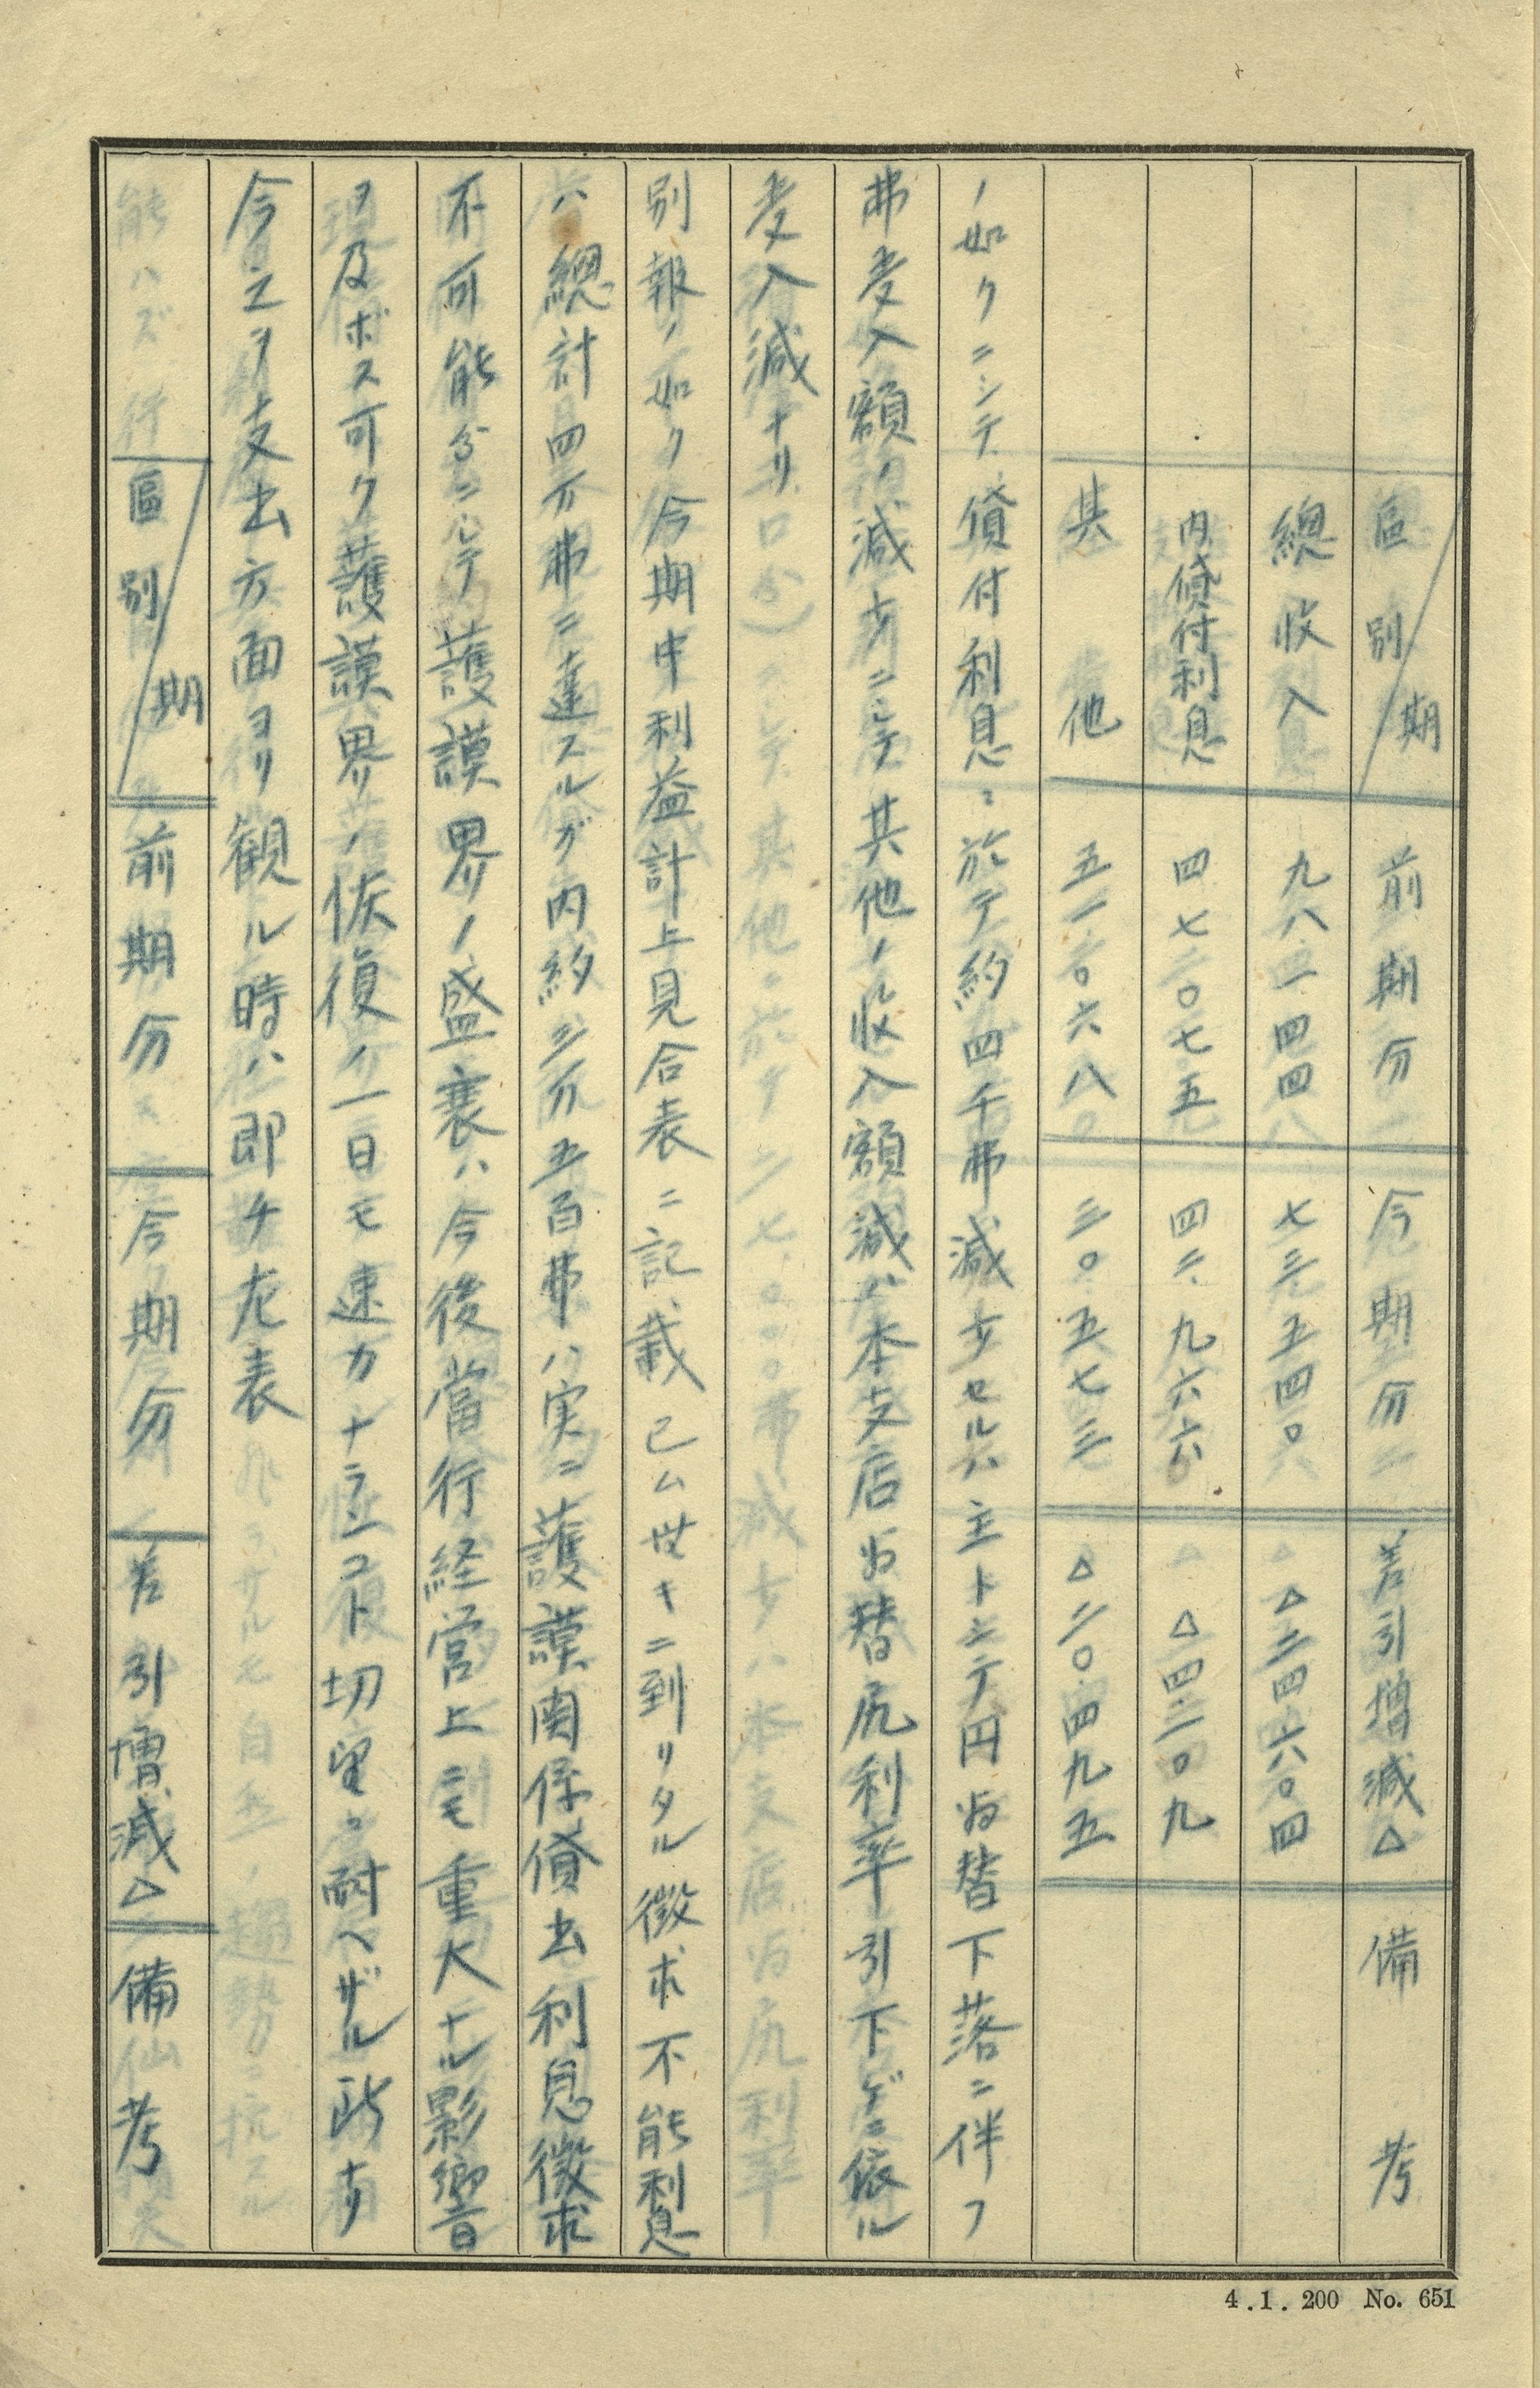 區別/期 前期分 今期分 差引增減△ 備考
總收入 九八.一四四 七三.五四〇 △二四.六〇四
內貸付利息 四七.〇七五 四二.九六六 △四.三〇九
其他 五一.〇六八 三〇.五七三 △二〇.四九五
ノ如クニシテ貸付利息ニ於テ約四千弗減少セルハ主トシテ円為替下落ニ伴フ
弗受入額ノ減少ニシテ其他ノ收入額減ハ本支店為替尻利率引下ゲニ依ル
受入減ナリ
別報ノ如ク今期中利益計上見合表ニ記載已ム世キニ到リタル徴求不能利息
ハ總計四万弗ニ達スルガ內約三万五百弗ハ実ニ護謨関係貸出利息徴求
不可能分ニシテ護謨界ノ盛衰ハ今後當行経営上ニモ重大ナル影響
ヲ及ボス可ク護謨界ノ恢復ノ一日モ速カナランコト切望ニ耐ヘザル所ナリ
今之ヲ支出方面ヨリ観ル時ハ即チ左表
區別/期 前期分 今期分 差引增減△ 備考
4.1.200 No. 651